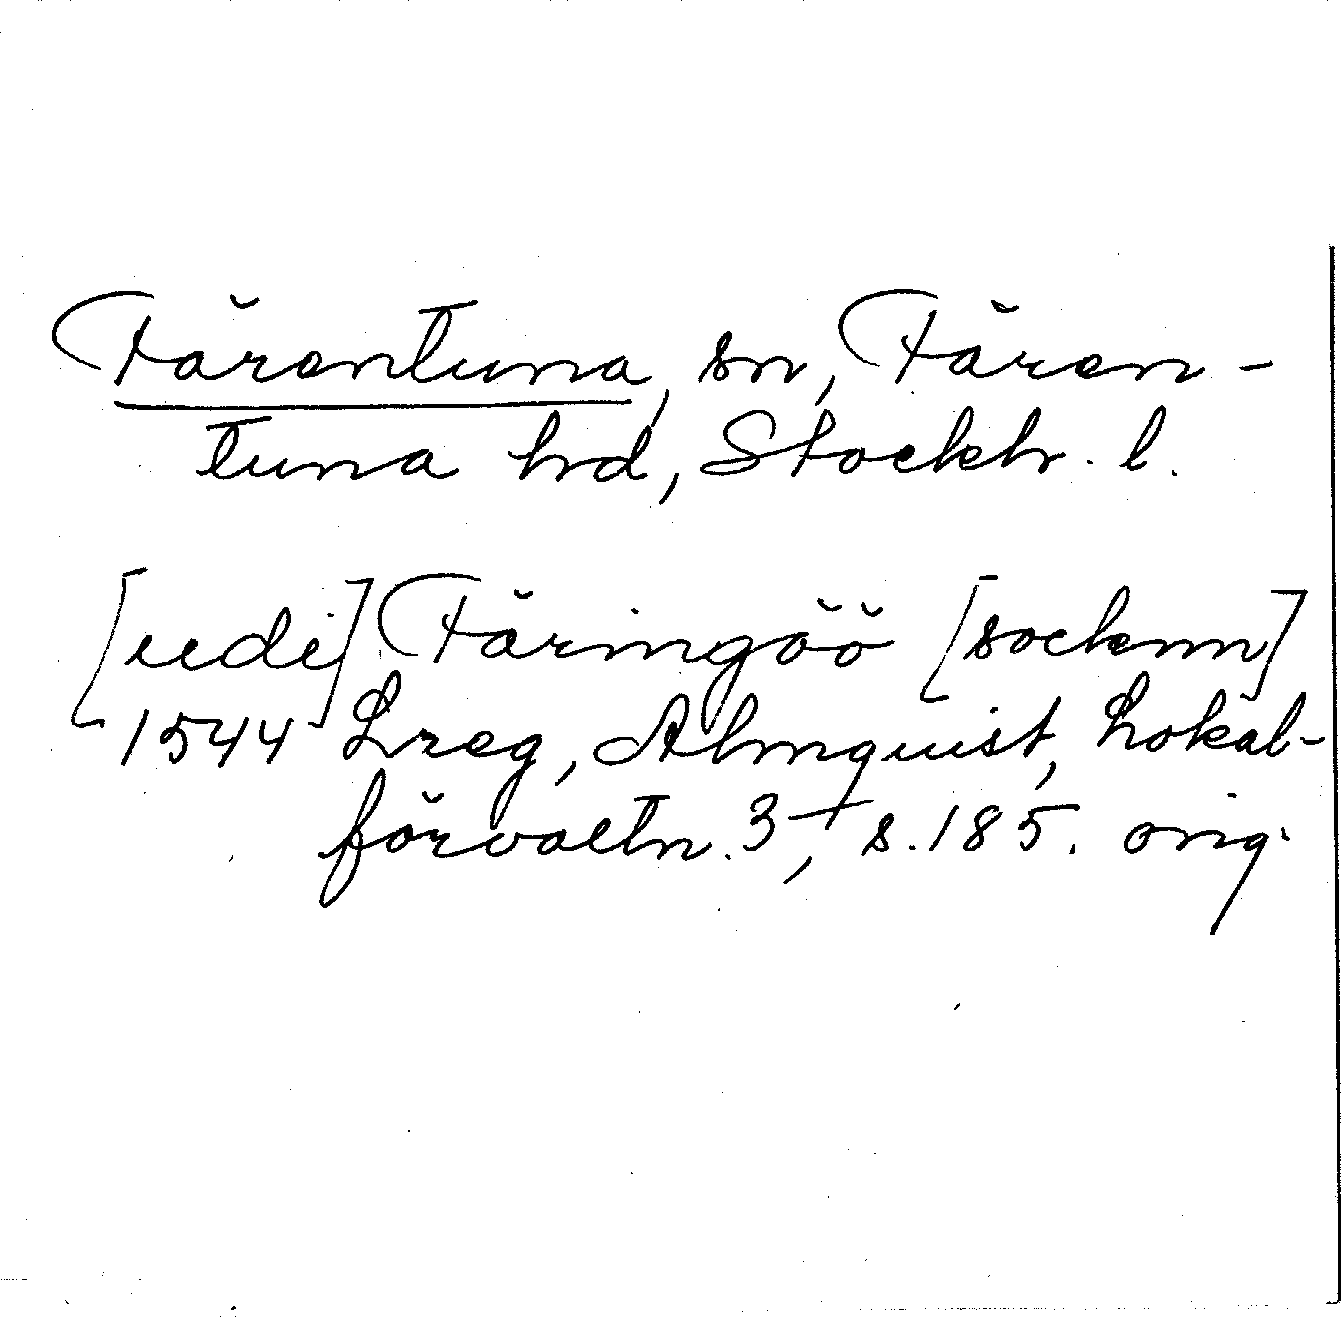 Färentuna, sn, Fären-
tuna hd, Stockh. l.
[uedi] Färingöö [sockenn]
1544 Lreg, Almquist, Lokal-
förvaltn. 3, s. 185. orig.